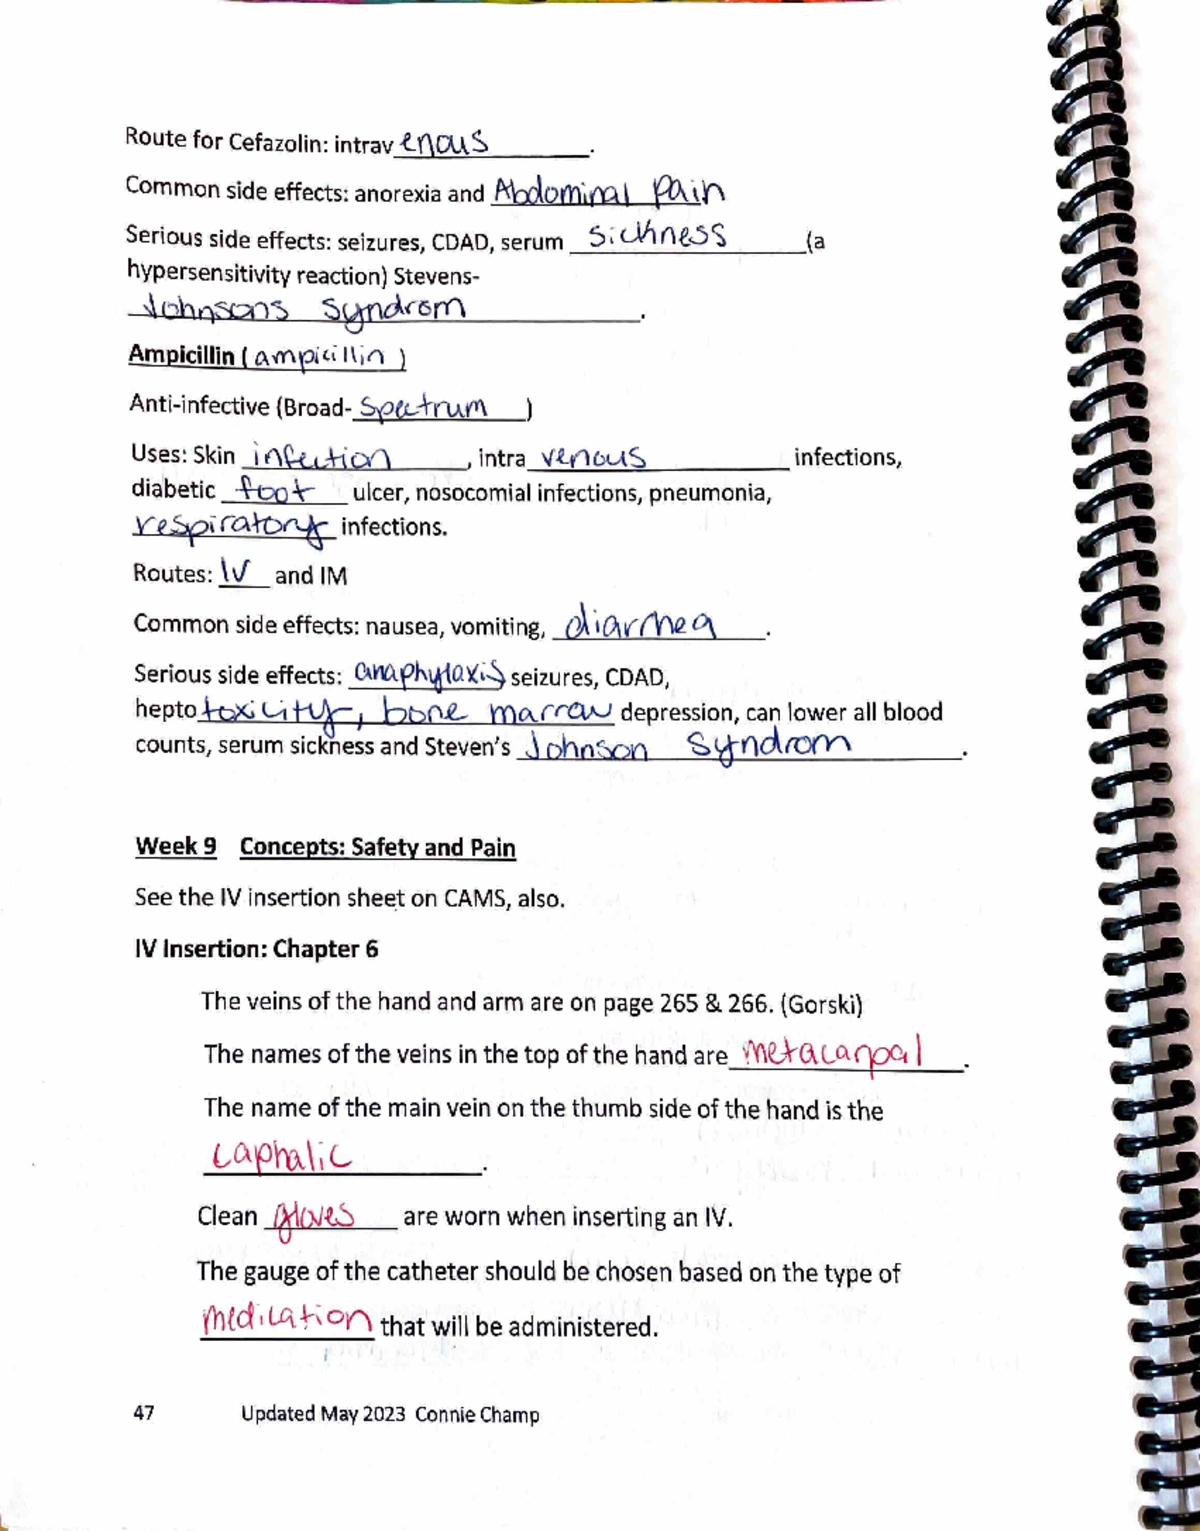 Route for Cefazolin: intravenous.
Common side effects: anorexia and Abdominal Pain
Serious side effects: seizures, CDAD, serum sickness (a
hypersensitivity reaction) Stevens-
Johnsons Syndrom.
Ampicillin (ampicillin)
Anti-infective (Broad-Spectrum)
Uses: Skin infection, intra venous infections,
diabetic foot ulcer, nosocomial infections, pneumonia,
respiratory infections.
Routes: IV and IM
Common side effects: nausea, vomiting, diarrhea.
Serious side effects: anaphylaxis seizures, CDAD,
hepto toxicity, bone marrow depression, can lower all blood
counts, serum sickness and Steven's Johnson Syndrom.
Week 9 Concepts: Safety and Pain
See the IV insertion sheet on CAMS, also.
IV Insertion: Chapter 6
The veins of the hand and arm are on page 265 & 266. (Gorski)
The names of the veins in the top of the hand are metacarpal.
The name of the main vein on the thumb side of the hand is the
caphalic.
Clean gloves are worn when inserting an IV.
The gauge of the catheter should be chosen based on the type of
medication that will be administered.
47 Updated May 2023 Connie Champ